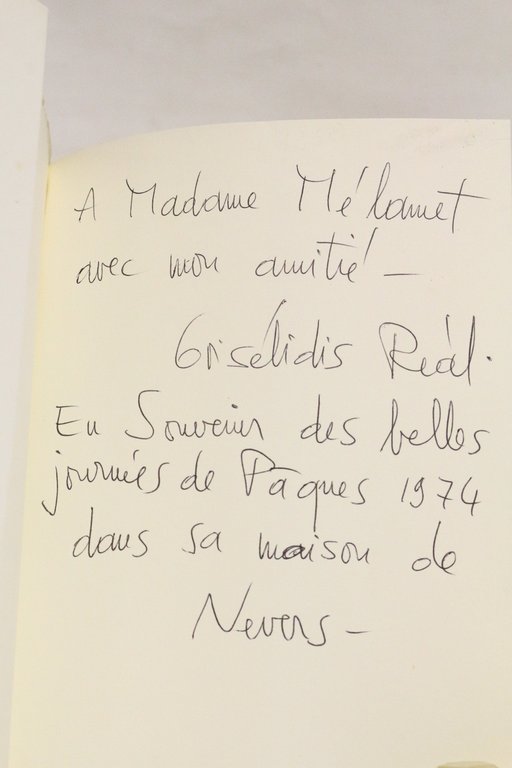 A Madame Mélamet
avec mon amitié –
Grisélidis Réal.
En Souvenir des belles
journées de Pâques 1974
dans sa maison de
Nevers –